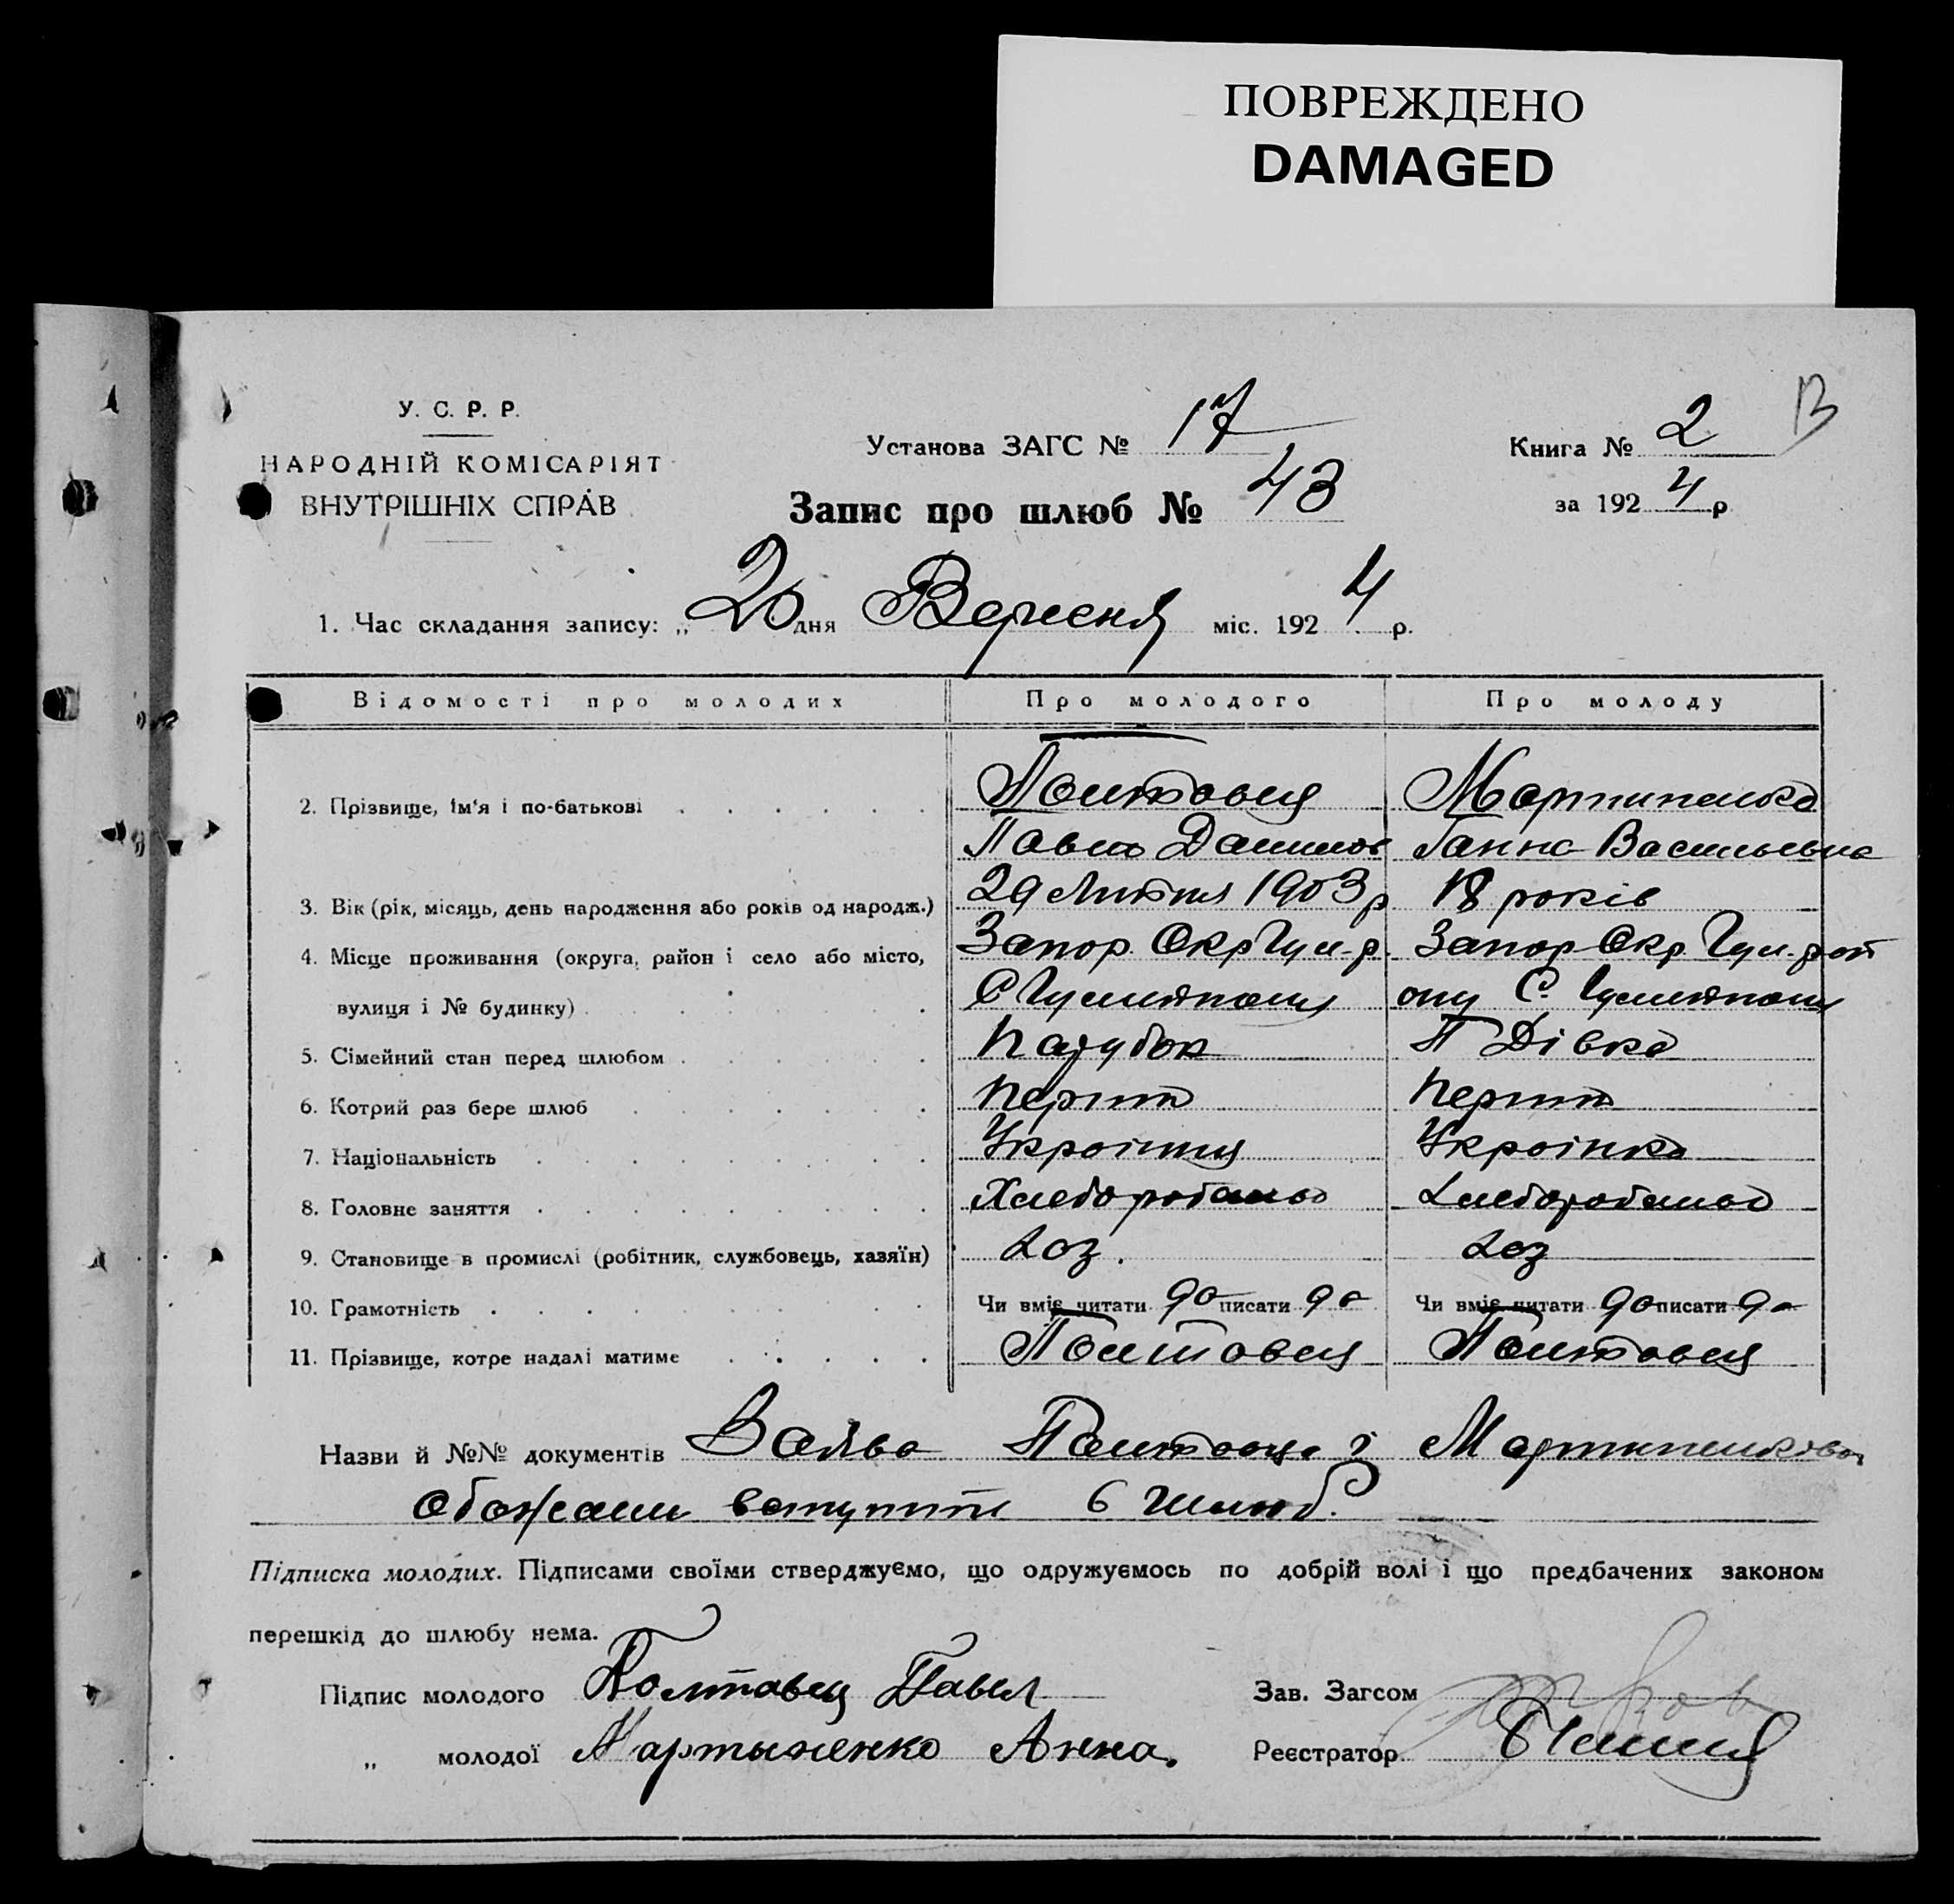 ПОВРЕЖДЕНО
DAMAGED
У. С. Р. Р.
НАРОДНІЙ КОМІСАРІЯТ
ВНУТРІШНІХ СПРАВ
Установа ЗАГС № 17
Книга № 2
В
Запис про шлюб № 43
за 1924 р
1. Час складання запису: „ 20 дня Вересня міс. 1924 р.
Відомості про молодих Про молодого Про молоду
2. Прізвище, ім'я і по-батькові Полтовець Мартиненко
Павло Данилов Ганна Васильевна
3. Вік (рік, місяць, день народження або років од народж.) 29 Липня 1903 р 18 років
4. Місце проживання (округа, район і село або місто, Запор. Окр Гул. р. Запор Окр. Гул. рай
вулиця і № будинку) С Гуляйполя ону С. Гуляйполя
5. Сімейний стан перед шлюбом Парубок Дівка
6. Котрий раз бере шлюб Перший Перший
7. Національність Українець Українка
8. Головне заняття Хлеборобство Хлеборобство
9. Становище в промислі (робітник, службовець, хазяїн) Хоз. Хоз
10. Грамотність Чи вміє читати да писати да Чи вміє читати да писати да
11. Прізвище, котре надалі матиме Полтовець Полтовець
Назви й №№ документів Заява Полтовця і Мартиненкова
обожали вступити в шлюб.
Підписка молодих. Підписами своїми стверджуємо, що одружуємось по добрій волі і що предбачених законом
перешкід до шлюбу нема.
Підпис молодого Полтавец Павел
Зав. Загсом
„ молодої Мартыненко Анна.
Реєстратор